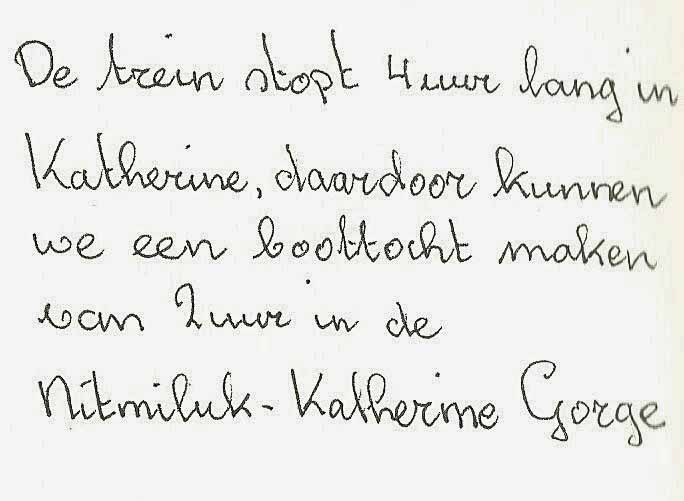 De trein stopt 4 uur lang in
Katherine, daardoor kunnen
we een boottocht maken
van 2 uur in de
Nitmiluk - Katherine Gorge